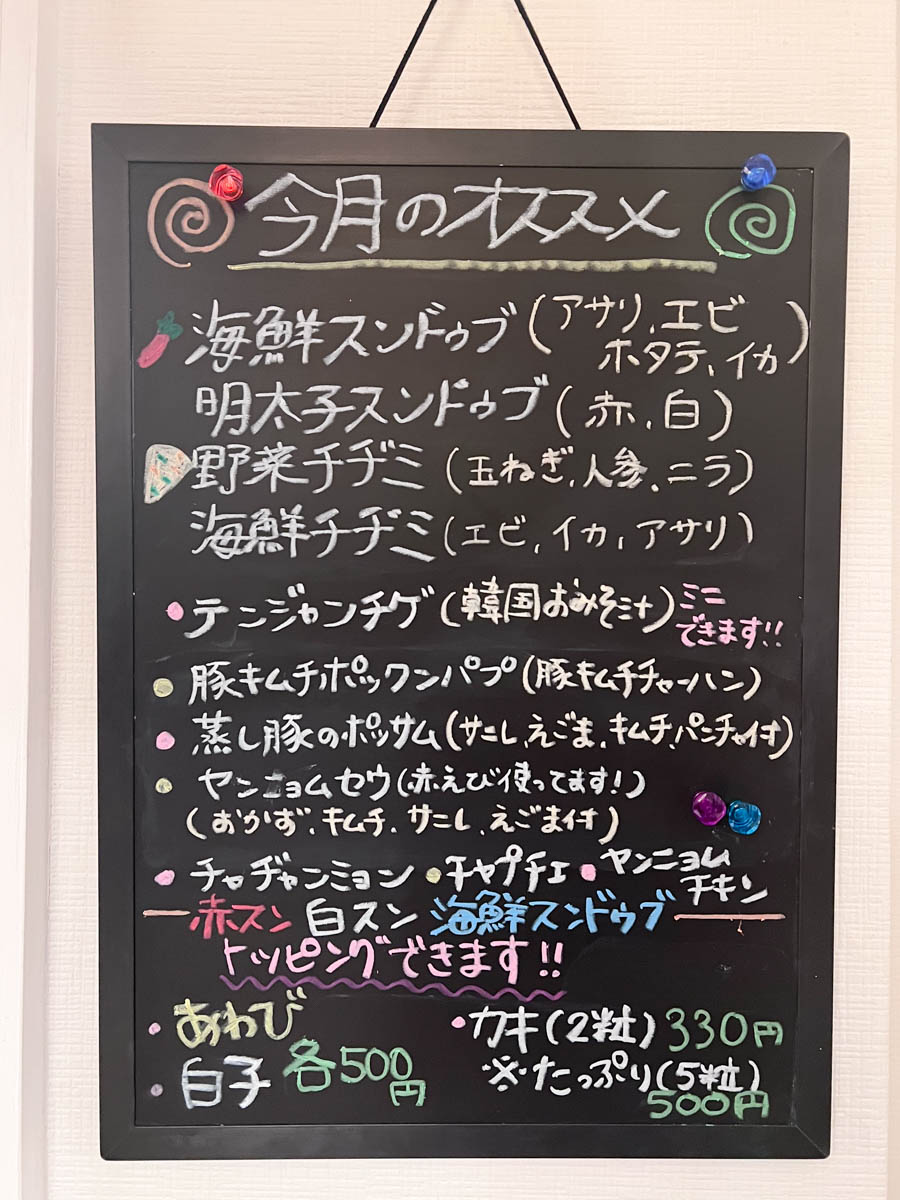 今月のオススメ
海鮮スンドゥブ(アサリ、エビ
ホタテ、イカ)
明太子スンドゥブ(赤、白)
野菜チヂミ(玉ねぎ、人参、ニラ)
海鮮チヂミ(エビ、イカ、アサリ)
テンジャンチゲ(韓国おみそ汁)ミニ
できます!!
豚キムチポックンパプ(豚キムチチャーハン)
蒸し豚のポッサム(サニーレ、えごま、キムチ、パンチャイ付)
ヤンニョムセウ(赤えび使ってます!)
(おかず、キムチ、サニーレ、えごま付)
チャヂャンミョン ・チャプチェ ・ヤンニョム
チキン
赤スン 白スン 海鮮スンドゥブ
トッピングできます!!
・あわび
・白子 各500円
・カキ(2粒)330円
※たっぷり(5粒)
500円